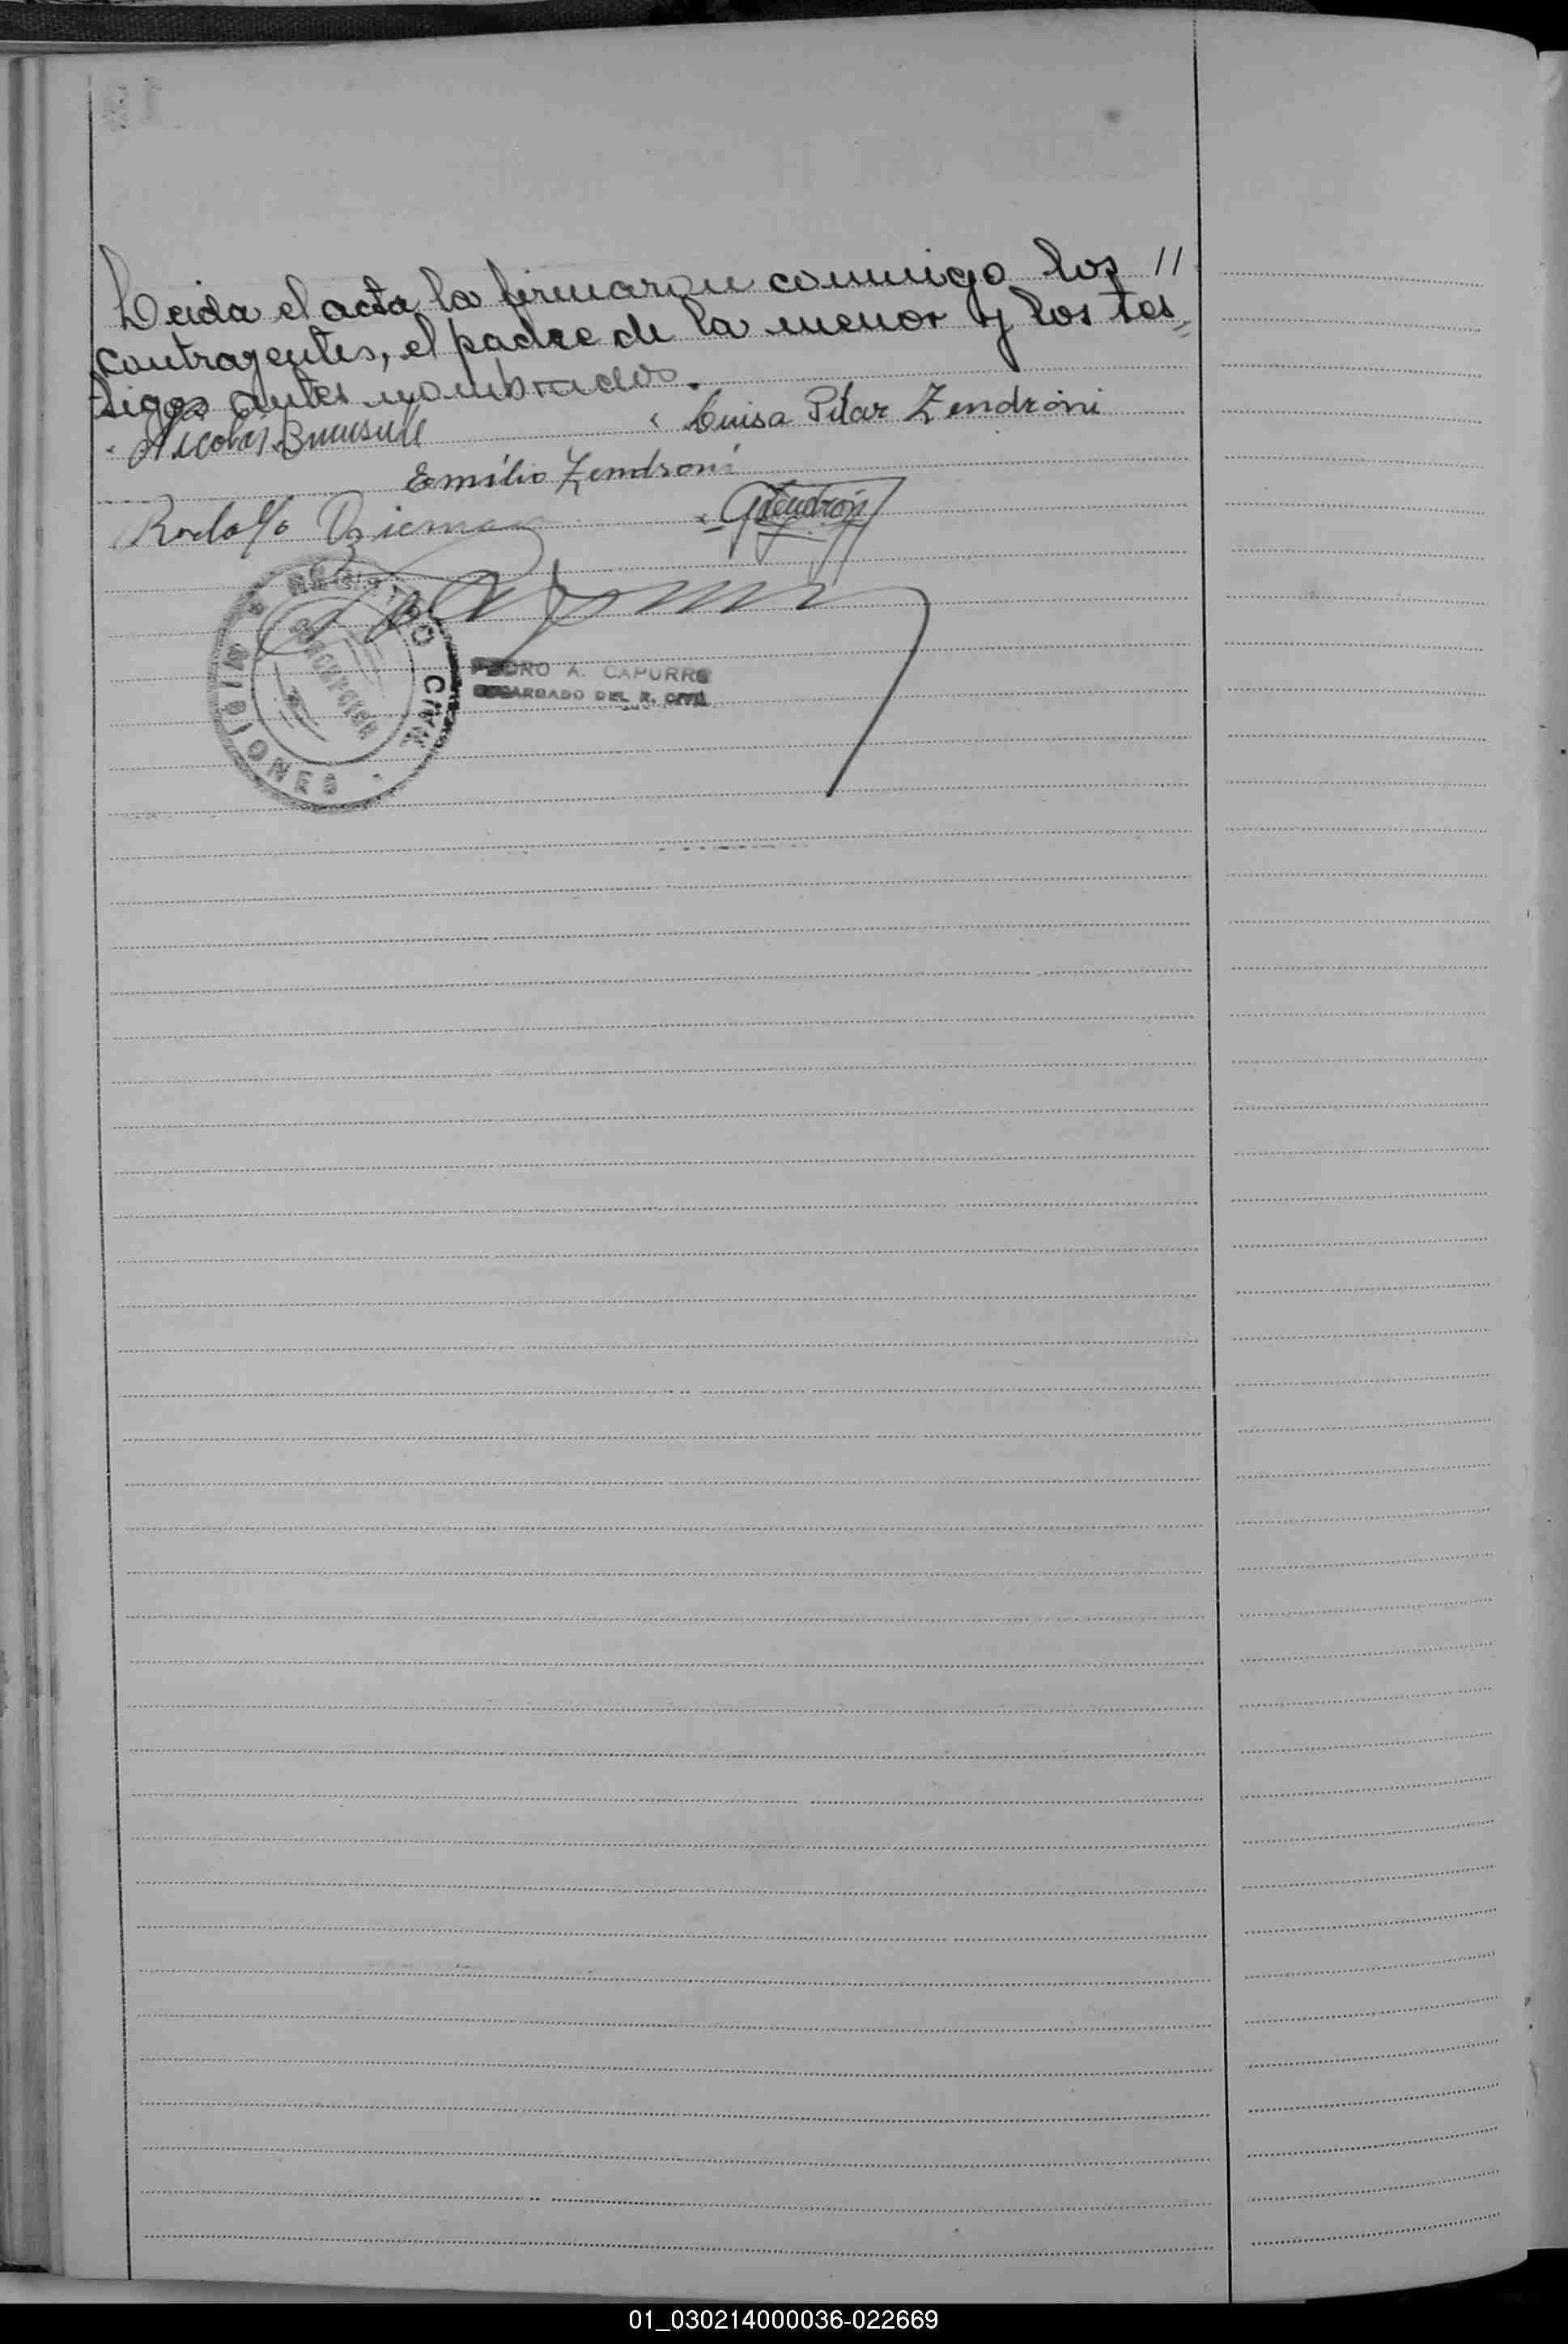 Leida el acta la firmaron conmigo los //
contrayentes, el padre de la menor y los tes=
tigos antes nombrados.
Nicolas
Luisa Pilar Zendroni
Emilio Zendroni
Rodolfo
GZendroni
REGISTRO CIVIL
MISIONES
PEDRO A. CAPURRO
ENCARGADO DEL R. CIVIL
01_030214000036-022669